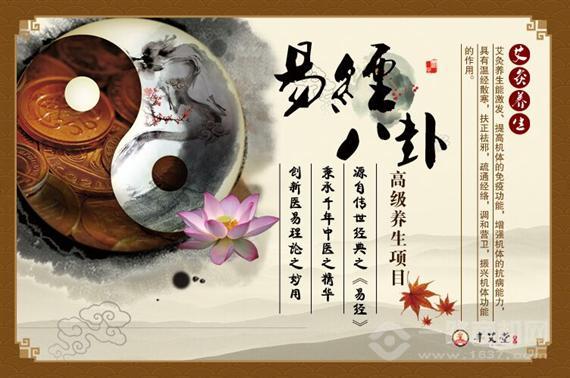 艾灸养生
艾灸养生能激发、提高机体的免疫功能，增强机体的抗病能力，
具有温经散寒，扶正祛邪，疏通经络，调和营卫，振兴机体功能
的作用。
易經
八卦
高级养生项目
源自传世经典之《易经》
秉承千年中医之精华
创新医易理论之妙用
www.1637.com